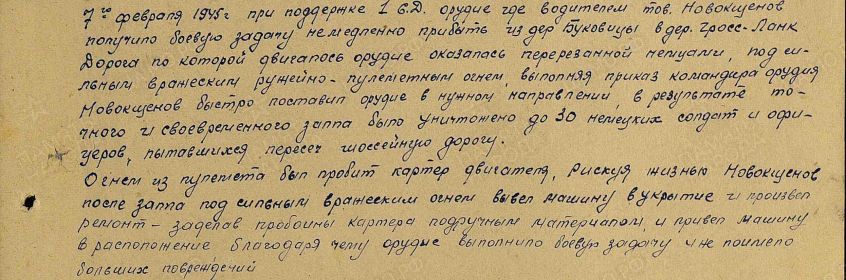 7го февраля 1945г при поддержке 1 С.Д. орудие где водителем тов. Новокщенов
получило боевую задачу немедленно прибыть из дер Буковицы в дер. Гросс-Ланк
Дорога по которой двигалось орудие оказалась перерезанной немцами, под си-
льным вражеским ружейно-пулеметным огнем, выполняя приказ командира орудия
Новокщенов быстро поставил орудие в нужном направлении, в результате то-
чного и своевременного залпа было уничтожено до 30 немецких солдат и офи-
церов, пытавшихся пересеч шоссейную дорогу.
Огнем из пулемета был пробит картер двигателя, Рискуя жизнью Новокщенов
после залпа под сильным вражеским огнем вывел машину в укрытие и произвел
ремонт - заделав пробоины картера подручным материалом, и привел машину
в расположение благодаря чему орудие выполнило боевую задачу и не поимело
больших повреждений